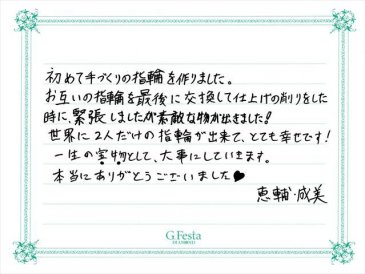 初めて手づくりの指輪を作りました。
お互いの指輪を最後に交換して仕上げの削りをした
時に、緊張しましたが素敵な物が出きました!
世界に2人だけの指輪が出来て、とても幸せです!
一生の宝物として、大事にしていきます。
本当にありがとうございました♥
恵輔・成美
G.Festa